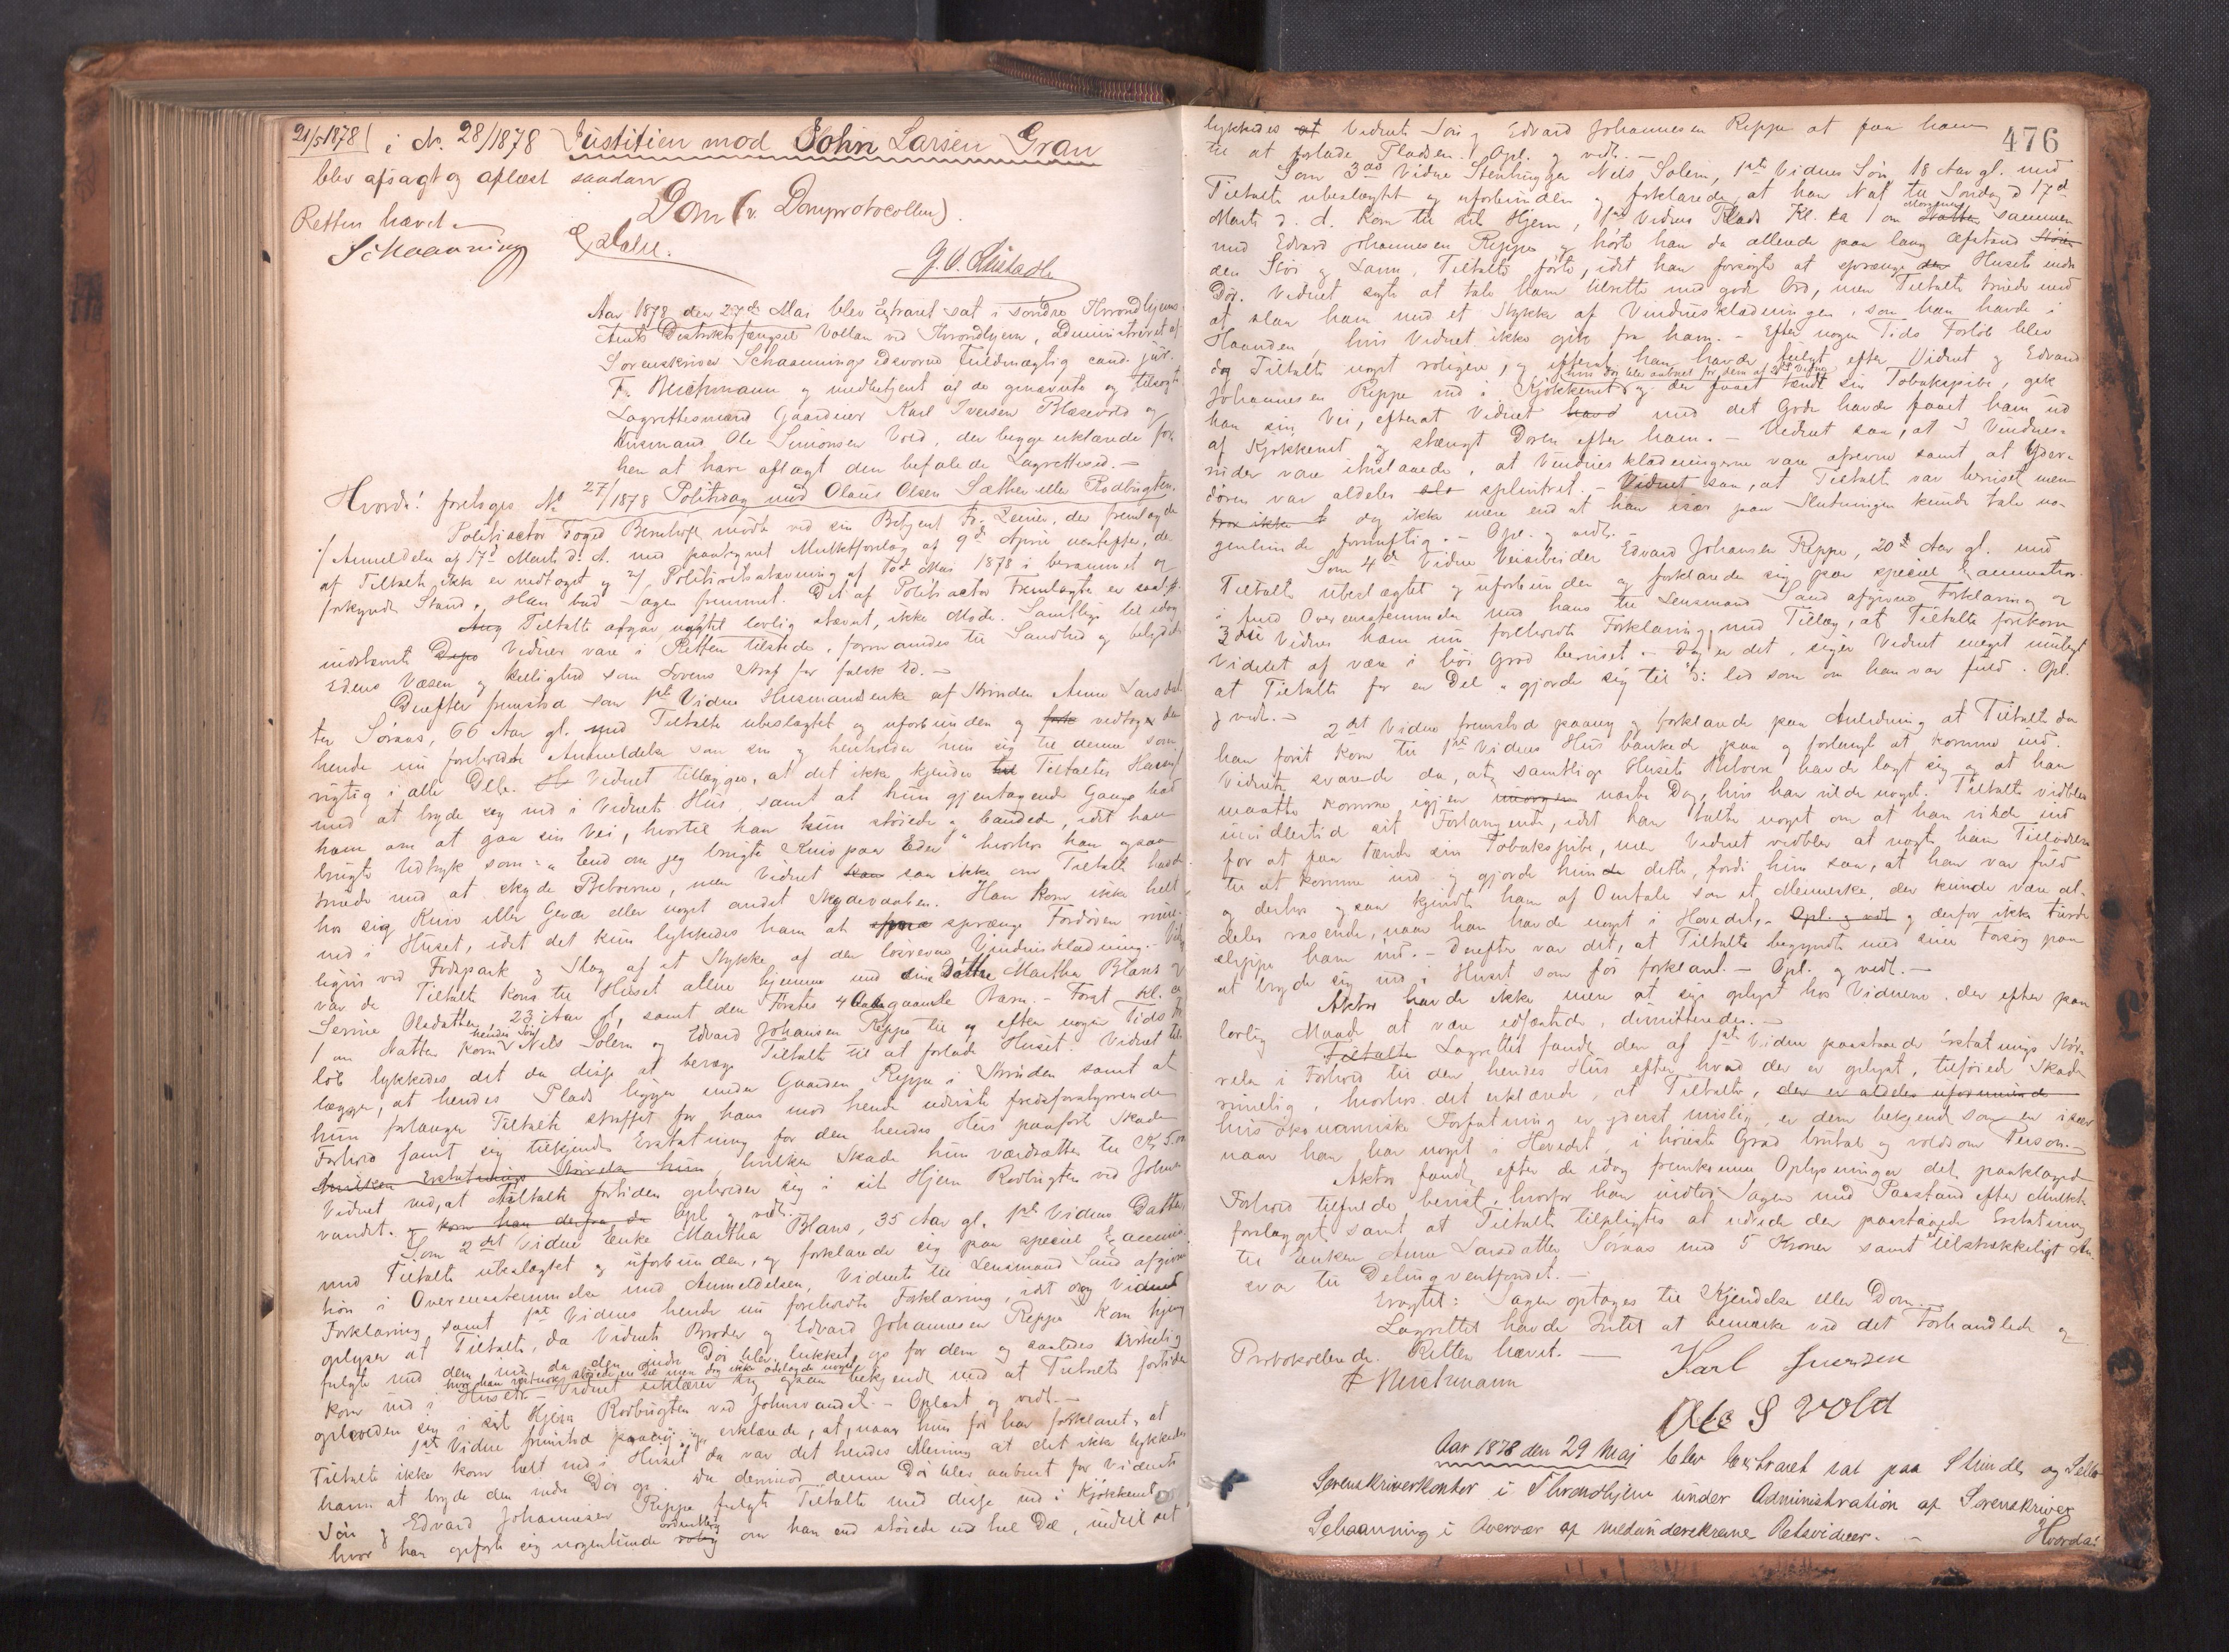 21/5 1878 i No. 28/1878 Justitien mod John Larsen Gran
blev afsagt og oplæst saadan
Dom (v. Domprotocollen).
Retten hævet.
Schaanning
Aar 1878 den 27de Mai blev Extraret sat i søndre Throndhjems
Amts Distriktsfængsel Vollan ved Throndhjem, administreret af
Sorenskriver Schaannings edsvorne Fuldmægtig cand. jur.
F. Neuchmann og medbetjent af de opnævnte og tilsagte
Lagrettesmænd Gaardmer Karl Iversen Blæsevold og
Husmand Ole Simonsen Vold, der begge erklærede før-
hen at have aflagt den befalede Lagrettesed. –
Hvorda! foretoges No 27/1878 Politisag mod Olaus Olsen Sæther eller Rødbugten.
Politiactor Foged Bernhoft mødte ved sin Betjent Fr. Zeiner, der fremlagde
1/ Anmeldelse af 17d Marts d. A. med paategnet Mulktforelæg af 9d April næstefter, de
af Tiltalte ikke er vedtaget og 2/ Politiretsstævning af 1od Mai 1878 i berammet og
forkyndt Stand. Han bad Sagen fremmet. Det af Politiactor Fremlagte er saalyd.
Tiltalte afgav, uagtet lovlig stævnt, ikke Møde. Samtlige til idag
indstævnte Vidner vare i Retten tilstede, formanedes til Sandhed og betyded
Edens Væsen og Hellighed som Lovens Straf for falsk Ed. –
Derefter fremstod som 1ste Vidne Husmandsenke af Strinden Anne Larsdat-
ter Søraas, 66 Aar gl. med Tiltalte ubeslægtet og uforbunden og vedtoges den
hende nu foreholdte Anmeldelse som sin og henholder hun sig til denne som
rigtig i alle Dele. Vidnet tillægger, at det ikke kjender til Tiltaltes Hensigt
med at bryde sig ind i Vidnets Hus, samt at hun gjentagende Gange bad
ham om at gaa sin Vei, hvortil han kun støiede og bandede, idet han
brugte Udtryk som: "End om jeg brugte Kniv paa Eder" hvorhos han ogsaa
truede med at skyde Beboerne, men Vidnet saa ikke om Tiltalte havde
hos sig Kniv eller Gevær eller noget andet Skydevaaben. Han kom ikke helt
ind i Huset, idet det kun lykkedes ham at sprænge Fordøren rime-
ligvis ved Fodspark og Slag af et Stykke af den løsrevne Vinduesklædning. Vidnet
var da Tiltalte kom til Huset allene hjemme med sine Døttre Martha Blans og
Serine Olsdatter, 23 Aar gl, samt den Førstes 4 Aar gamle Barn. – Først kl. ca
1 om Natten kom hendes Søn Nels Solem og Edvard Johansen Reppe til og efter nogen Tids For-
løb lykkedes det da disse at bevæge Tiltalte til at forlade Huset. Vidnet til-
lægger, at hendes Plads ligger under Gaarden Reppe i Strinden samt at
hun forlanger Tiltalte straffet for hans mod hende udviste fredsforstyrrende
Forhold samt sig tilkjendt Erstatning for den hendes Hus paaførte Skade
hvilken Erstatnings Størrelse hun, hvilken Skade hun værdsætter til Kr 5.00
Vidnet ved, at Tiltalte fortiden opholder sig i sit Hjem Rødbugten ved Johns-
vandet. og kom han derfra, da Opl. og vedt. –
Som 2det Vidne Enke Martha Blans, 35 Aar gl. 1ste Vidnes Datter,
med Tiltalte ubeslægtet og uforbunden, og forklarede sig paa speciel Examina-
tion i Overensstemmelse med Anmeldelsen, Vidnets til Lensmand Sand afgivne
Forklaring samt 1ste Vidnes hende nu foreholdte Forklaring, idet dog Vidnet
oplyser at Tiltalte, da Vidnets Broder og Edvard Johannesen Reppe kom hjem
fulgte med dem ind, da den indre Dør blev lukket op for dem og saaledes virkelig
hvor han vistnok støiede en Del men dog ikke ødelagde noget.
kom ind i Huset. – Vidnet erklærer sig ogsaa bekjendt med at Tiltalte fortiden
opholder sig i sit Hjem Rødbugten ved Johnsvandet. – Oplæst og vedt. –
1ste Vidne fremstod paany og erklærede, at, naar hun før har forklaret, at
Tiltalte ikke kom helt ind i Huset da var det hendes Mening at det ikke lykkedes
ham at bryde den indre Dør op. Da derimod denne Dør blev aabnet for Vidnets
Søn og Edvard Johannesen Reppe fulgte Tiltalte med disse ind i Kjøkkenet
hvor han opførte sig nogenlunde rolig ordentlig om han end støiede en hel Del, indtil det
476
lykkedes at Vidnets Søn og Edvard Johannesen Reppe at faa ham
til at forlade Pladsen. Opl. og vedt. –
Som 3die Vidne Stenhugger Nels Solem, 1ste Vidnes Søn, 18 Aar gl. med
Tiltalte ubeslægtet og uforbunden og forklarede, at han Nat til Søndag d 17d
Marts d. A. kom til sit Hjem, 1ste Vidnes Plads Kl. ca 1 om Natten Morgenen sammen
med Edvard Johannesen Reppe og hørte han da allerede paa lang Afstand
den Støi og Larm, Tiltalte førte, idet han forsøgte at sprænge den Husets indre
Dør. Vidnet søgte at tale ham tilrette med gode Ord, men Tiltalte truede med
at slaa ham med et Stykke af Vinduesklædningen, som han havde i
Haanden, hvis Vidnet ikke gik fra ham. – Efter nogen Tids Forløb blev
dog Tiltalte noget roligere, og efterat han havde fulgt efter Vidnet og Edvard
hvis Dør blev aabnet for dem af 2det Vidne
Johannesen Reppe ind i Kjøkkenet og der faaet tændt sin Tobakspibe, gik
han sin Vei, efterat Vidnet havd med det Gode havde faaet ham ud
af Kjøkkenet og stængt Døren efter ham. – Vidnet saa, at 3 Vindues-
ruder vare itustaaede, at Vinduesklædningerne vare afrevne samt, at Yder-
døren var aldeles splintret. – Vidnet saa, at Tiltalte var beruset men
dog ikke mere end at han især paa Slutningen kunde tale no-
genlunde fornuftig. – Opl. og vedt. –
Som 4de Vidne Veiarbeider Edvard Johansen Reppe, 20 Aar gl. med
Tiltalte ubeslægtet og uforbunden og forklarede sig paa speciel Examination
i fuld Overensstemmelse med hans til Lensmand Sand afgivne Forklaring og
3die Vidnes ham nu foreholdte Forklaring, med Tillæg, at Tiltalte forekom
Vidnet at være i høi Grad beruset. – Dog er det, siger Vidnet meget muligt
at Tiltalte for en Del "gjorde sig til" d: lod som om han var fuld. Opl.
og vedt. –
2det Vidne fremstod paany og forklarede paa Anledning at Tiltalte da
han først kom til 1ste Vidnes Hus bankede paa og forlangte at komme ind.
Vidnet svarede da, at samtlige Husets Beboere havde lagt sig og at han
maatte komme igjen imorgen næste Dag, hvis han vilde noget. Tiltalte vidblev
imidlertid sit Forlangende, idet han talte noget om at han vilde ind
for at faa tænde sin Tobakspibe, men Vidnet vedblev at nægte ham Tilladelse
til at komme ind og gjorde hun dette, fordi hun saa, at han var fuld
og derhos ogsaa kjendte ham af Omtale som et Menneske, der kunde være al-
deles rasende, naar han havde noget i Hovedet, – Opl. og vedt og derfor ikke turde
slippe ham ind. – Derefter var det, at Tiltalte begyndte med sine Forsøg paa
at bryde sig ind i Huset som før forklaret. – Opl. og vedt. –
Aktor havde ikke mere at søge oplyst hos Vidnerne, der efter paa
lovlig Maade at være edfæstede, dimitteredes. –
Tiltalte Lagrettet fandt den af 1ste Vidne paastaaede Erstatnings Stør-
relse i Forhold til den hendes Hus efter, hvad der er oplyst, tilføiede Skade
rimelig, hvorhos det erklærede, at Tiltalte, der er aldeles uformuende
hvis økonomiske Forfatning er yderst mislig, er dem bekjendt som en især
naar han har noget i Hovedet, i høieste Grad brutal og voldsom Person. –
Aktor fandt efter de idag fremkomne Oplysninger det paaklagede
Forhold tilfulde bevist, hvorfor han indlod Sagen med Paastand efter Mulkt-
forelægget, samt at Tiltalte tilpligtes at udrede den paastaaede Erstatning
til Enken Anne Larsdatter Søraas med 5 Kroner samt et tilstrækkeligt An-
svar til Delinqventfondet. –
Eragtet: Sagen optages til Kjendelse eller Dom.
Lagrettet havde Intet at bemærke ved det Forhandlede og
Protokollerede. Retten hævet. –
F Neuchmann
Karl Iversen
Ole S Vold
Aar 1878 den 29 Maj blev Extraret sat paa Strinde og Selbo
Sorenskriverkontor i Throndhjem under Administration af Sorenskriver
Schaanning i Overvær af medunderskrevne Retsvidner. –
Hvorda!